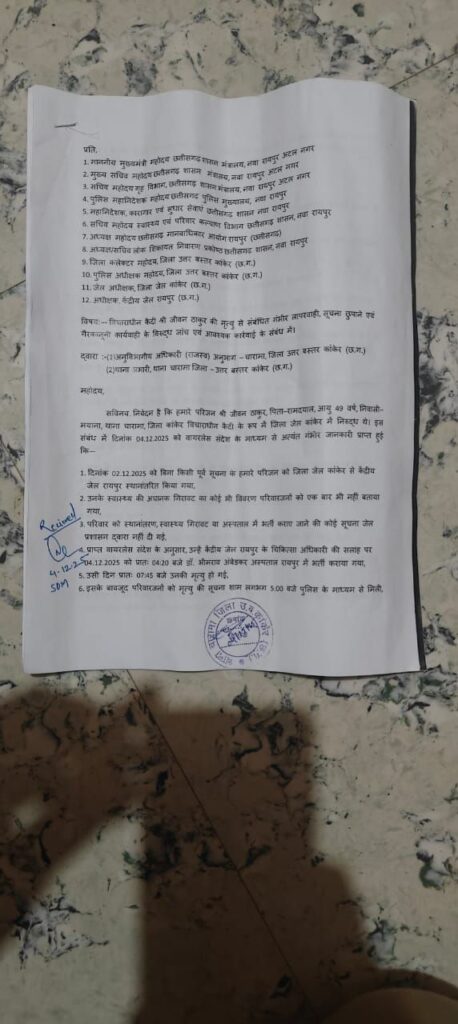 प्रति,
1. माननीय मुख्यमंत्री महोदय छत्तीसगढ़ शासन मंत्रालय, नवा रायपुर अटल नगर
2. मुख्य सचिव महोदय छत्तीसगढ़ शासन मंत्रालय, नवा रायपुर अटल नगर
3. सचिव महोदय गृह विभाग, छत्तीसगढ़ शासन मंत्रालय, नवा रायपुर अटल नगर
4. पुलिस महानिदेशक महोदय छत्तीसगढ़ पुलिस मुख्यालय, नवा रायपुर
5. महानिदेशक, कारागार एवं सुधार सेवाएं छत्तीसगढ़ शासन नवा रायपुर
6. सचिव महोदय स्वास्थ्य एवं परिवार कल्याण विभाग छत्तीसगढ़ शासन, नवा रायपुर
7. अध्यक्ष महोदय छत्तीसगढ़ मानवाधिकार आयोग रायपुर (छत्तीसगढ़)
8. अध्यक्ष/सचिव लोक शिकायत निवारण प्रकोष्ठ छत्तीसगढ़ शासन, नवा रायपुर
9. जिला कलेक्टर महोदय, जिला उत्तर बस्तर कांकेर (छ.ग.)
10. पुलिस अधीक्षक महोदय, जिला उत्तर बस्तर कांकेर (छ.ग.)
11. जेल अधीक्षक, जिला जेल कांकेर (छ.ग.)
12. अधीक्षक, केंद्रीय जेल रायपुर (छ.ग.)
विषय:-- विचाराधीन कैदी श्री जीवन ठाकुर की मृत्यु से संबंधित गंभीर लापरवाही, सूचना छुपाने एवं
गैरकानूनी कार्यवाही के विरुद्ध जांच एवं आवश्यक कार्रवाई के संबंध में।
द्वारा :-(1)अनुविभागीय अधिकारी (राजस्व) अनुभाग - चारामा, जिला उत्तर बस्तर कांकेर (छ.ग.)
(2)थाना प्रभारी, थाना चारामा जिला -उत्तर बस्तर कांकेर (छ.ग.)
महोदय,
सविनय निवेदन है कि हमारे परिजन श्री जीवन ठाकुर, पिता-रामदयाल, आयु 49 वर्ष, निवासी-
मयाना, थाना चारामा, जिला कांकेर विचाराधीन कैदी के रूप में जिला जेल कांकेर में निरुद्ध थे। इस
संबंध में दिनांक 04.12.2025 को वायरलेस संदेश के माध्यम से अत्यंत गंभीर जानकारी प्राप्त हुई
कि--
1. दिनांक 02.12.2025 को बिना किसी पूर्व सूचना के हमारे परिजन को जिला जेल कांकेर से केंद्रीय
जेल रायपुर स्थानांतरित किया गया,
2. उनके स्वास्थ्य की अचानक गिरावट का कोई भी विवरण परिवारजनों को एक बार भी नहीं बताया
गया,
3. परिवार को स्थानांतरण, स्वास्थ्य गिरावट या अस्पताल में भर्ती कराए जाने की कोई सूचना जेल
प्रशासन द्वारा नहीं दी गई,
4. प्राप्त वायरलेस संदेश के अनुसार, उन्हें केंद्रीय जेल रायपुर के चिकित्सा अधिकारी की सलाह पर
04.12.2025 को प्रातः 04:20 बजे डॉ. भीमराव अंबेडकर अस्पताल रायपुर में भर्ती कराया गया,
5. उसी दिन प्रातः 07:45 बजे उनकी मृत्यु हो गई,
6. इसके बावजूद परिवारजनों को मृत्यु की सूचना शाम लगभग 5:00 बजे पुलिस के माध्यम से मिली,
Received
4-12-25
SDM
चारामा जिला उ.ब.कांकेर